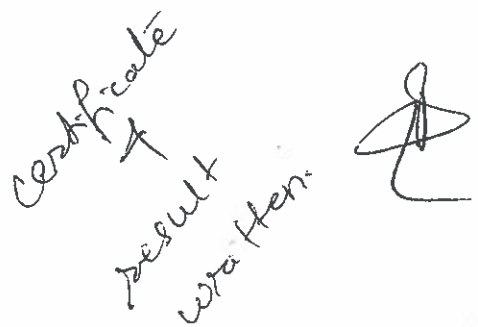 certificate
&
result
written.